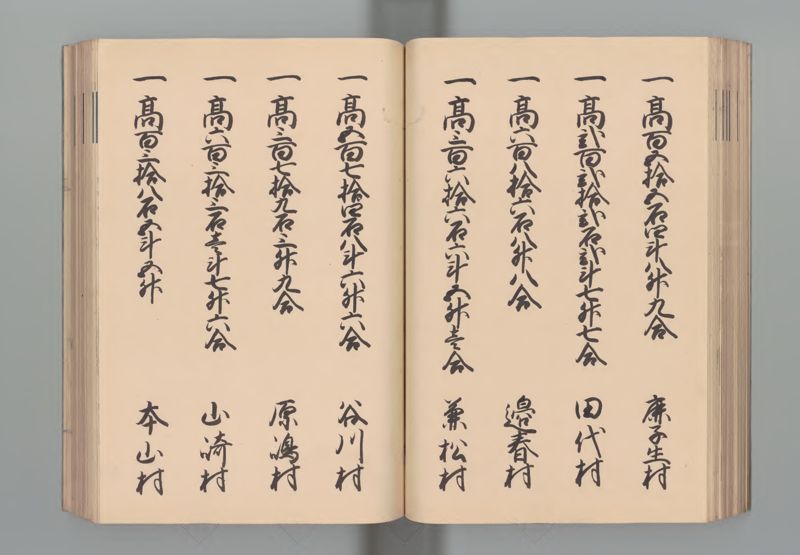 一高百五拾五石四斗八升九合 麻生村
一高弐百弐拾弐石弐斗七升七合 田代村
一高六百八拾六石八升八合 邉春村
一高三百六拾六石六斗五升壱合 兼松村
一高五百七拾四石八斗六升六合 谷川村
一高三百七拾九石三升九合 原嶋村
一高六百三拾三石壱斗七升六合 山崎村
一高百三拾八石五斗五升 本山村